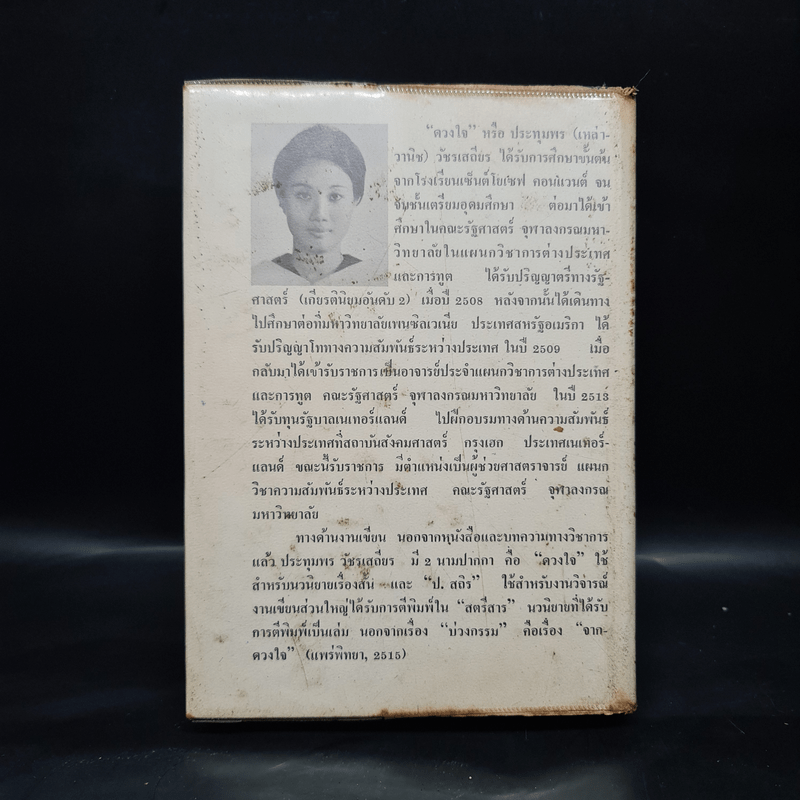 “ดวงใจ” หรือ ประทุมพร (เหล่า-
วานิช) วัชรเสถียร ได้รับการศึกษาขั้นต้น
จากโรงเรียนเซ็นต์โยเซฟ คอนแวนต์ จน
จบชั้นเตรียมอุดมศึกษา ต่อมาได้เข้า
ศึกษาในคณะรัฐศาสตร์ จุฬาลงกรณมหา-
วิทยาลัยในแผนกวิชาการต่างประเทศ
และการทูต ได้รับปริญญาตรีทางรัฐ-
ศาสตร์ (เกียรตินิยมอันดับ 2) เมื่อปี 2508 หลังจากนั้นได้เดินทาง
ไปศึกษาต่อที่มหาวิทยาลัยเพนซิลเวเนีย ประเทศสหรัฐอเมริกา ได้
รับปริญญาโททางความสัมพันธ์ระหว่างประเทศ ในปี 2509 เมื่อ
กลับมาได้เข้ารับราชการเป็นอาจารย์ประจำแผนกวิชาการต่างประเทศ
และการทูต คณะรัฐศาสตร์ จุฬาลงกรณมหาวิทยาลัย ในปี 2513
ได้รับทุนรัฐบาลเนเทอร์แลนด์ ไปฝึกอบรมทางด้านความสัมพันธ์
ระหว่างประเทศที่สถาบันสังคมศาสตร์ กรุงเฮก ประเทศเนเทอร์-
แลนด์ ขณะนี้รับราชการ มีตำแหน่งเป็นผู้ช่วยศาสตราจารย์ แผนก
วิชาความสัมพันธ์ระหว่างประเทศ คณะรัฐศาสตร์ จุฬาลงกรณ
มหาวิทยาลัย
ทางด้านงานเขียน นอกจากหนังสือและบทความทางวิชาการ
แล้ว ประทุมพร วัชรเสถียร มี 2 นามปากกา คือ “ดวงใจ” ใช้
สำหรับนวนิยายเรื่องสั้น และ “ป. สถิร” ใช้สำหรับงานวิจารณ์
งานเขียนส่วนใหญ่ได้รับการตีพิมพ์ใน “สตรีสาร” นวนิยายที่ได้รับ
การตีพิมพ์เป็นเล่ม นอกจากเรื่อง “บ่วงกรรม” คือเรื่อง “จาก-
ดวงใจ” (แพร่พิทยา, 2515)